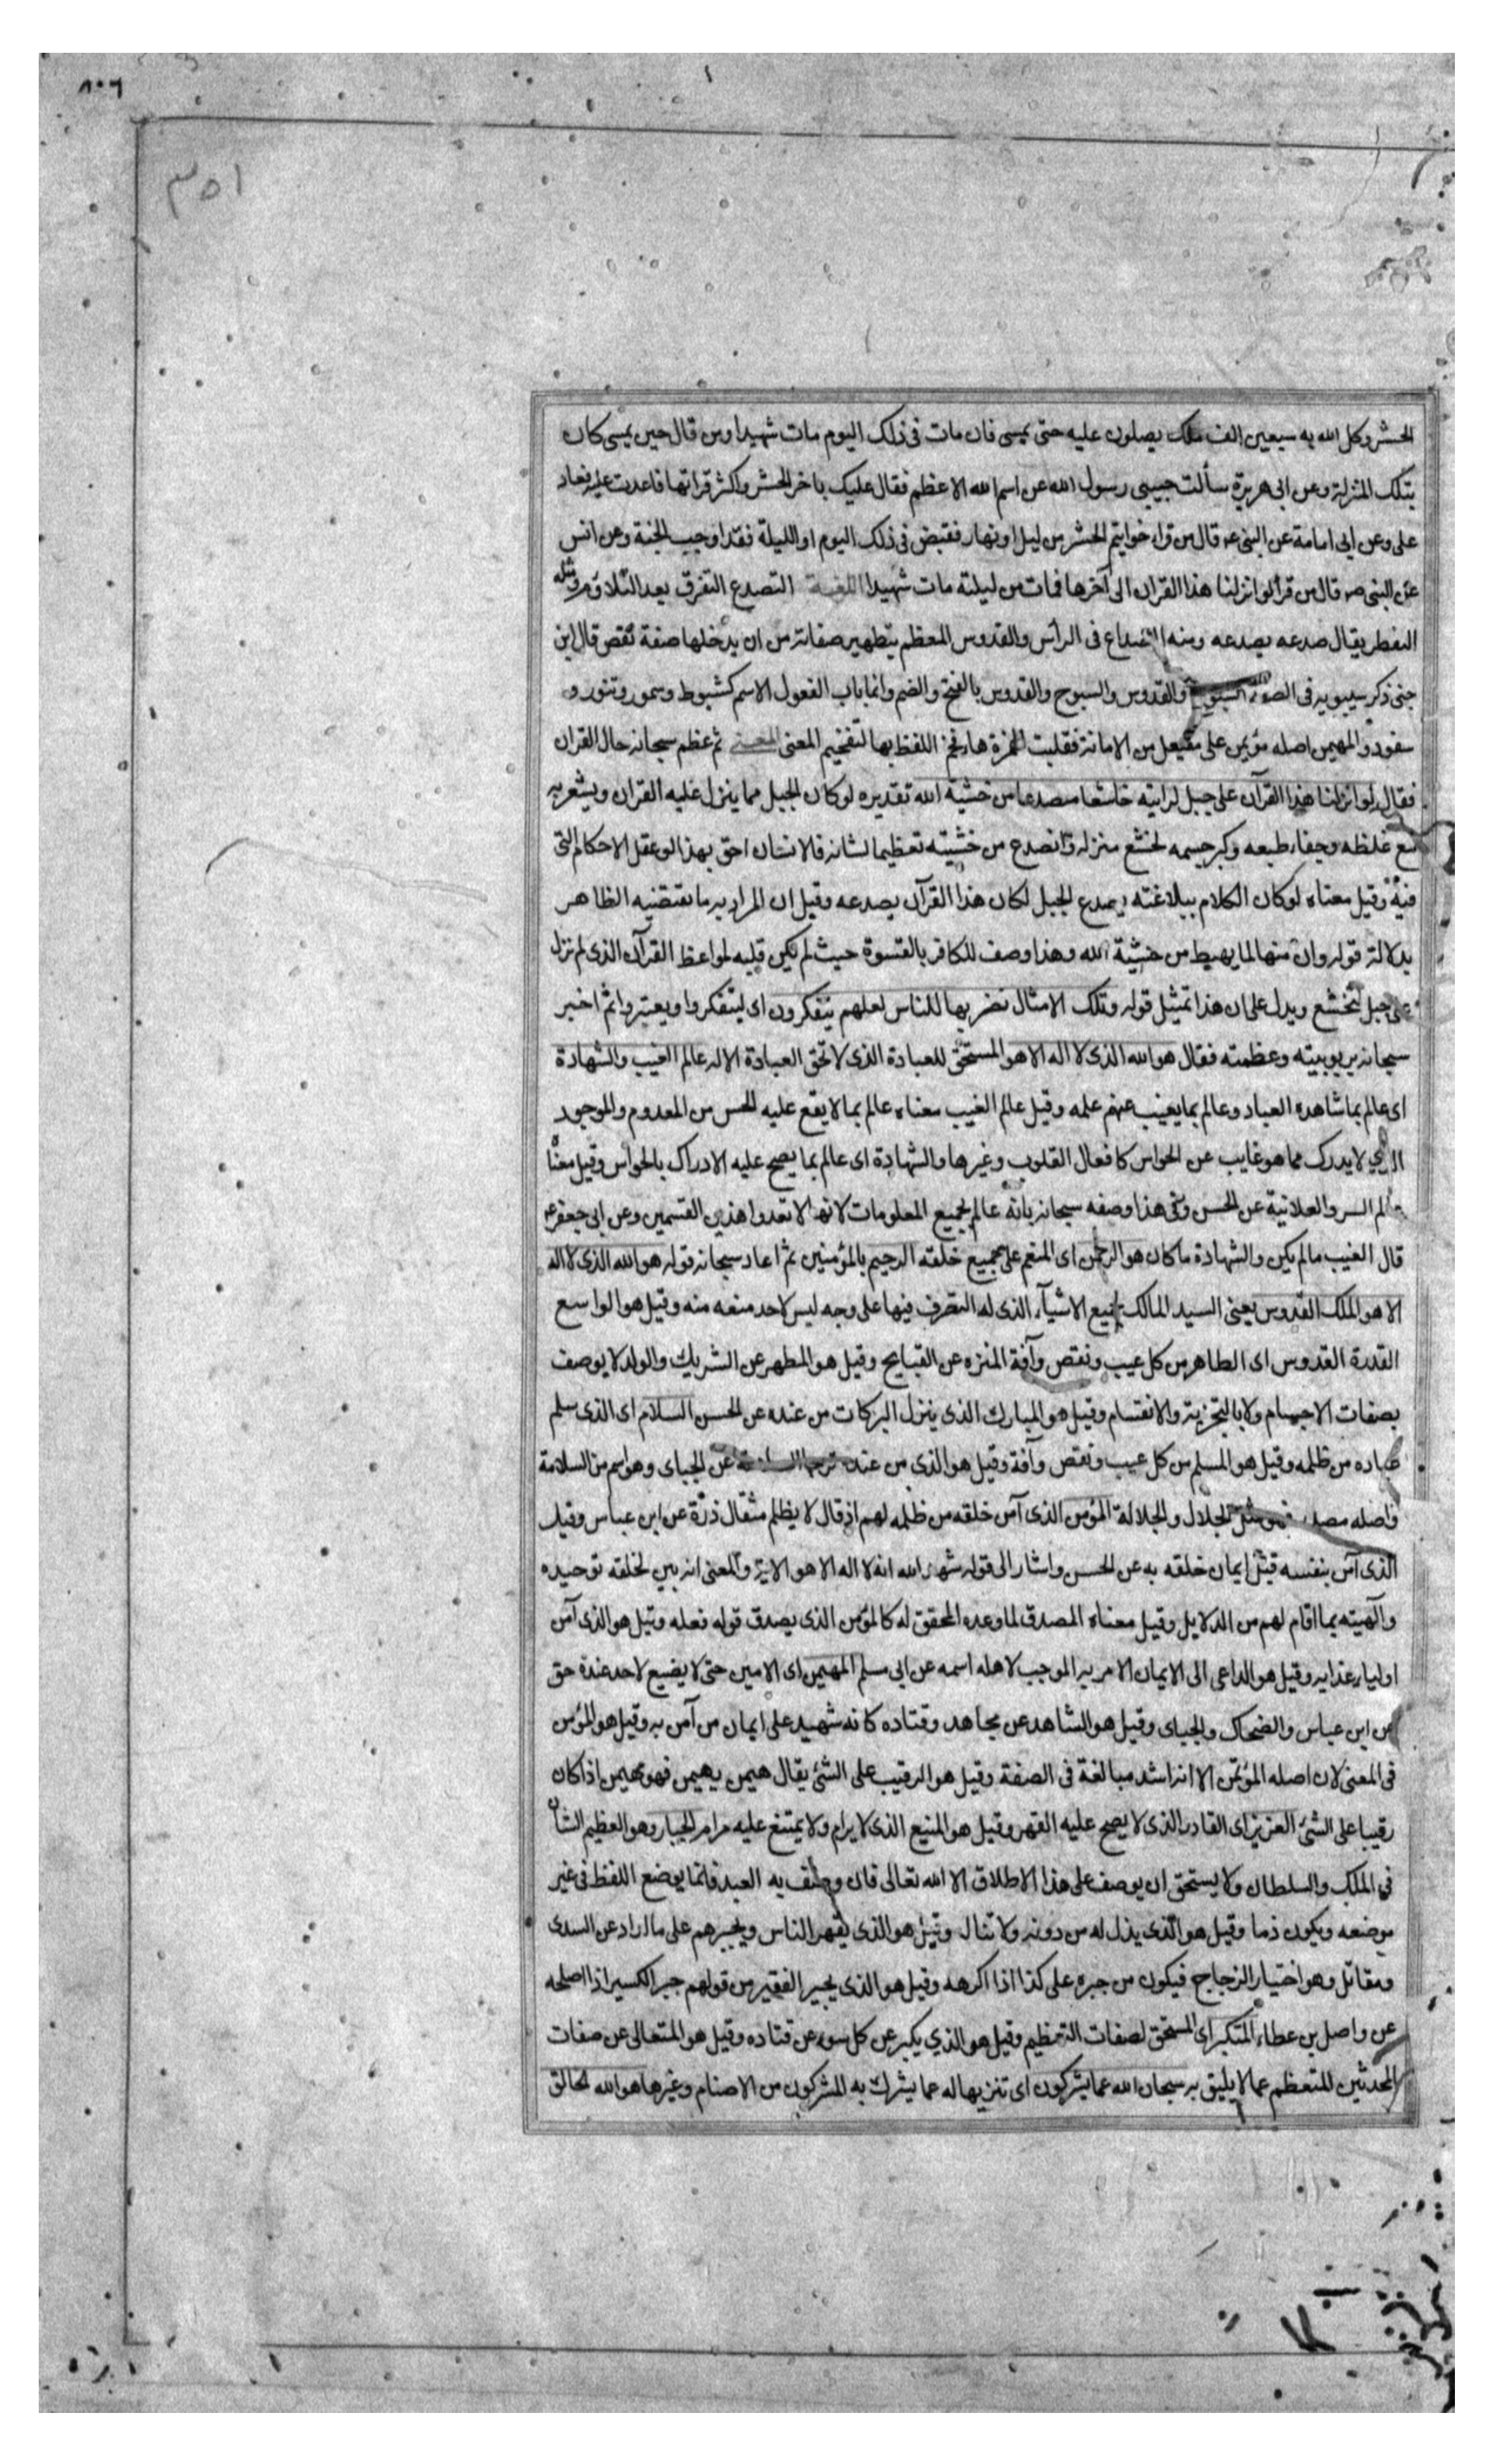 ٨٠٦
٣٥١
الحشر وكل الله به سبعين الف ملك يصلون عليه حتى يمسى فان مات فى ذلك اليوم مات شهيدا ومن قال حين يمسى كان
بتلك المنزلة وعن ابى هريرة سألت حبيبى رسول الله عن اسم الله الاعظم فقال عليك باخر الحشر واكثر قراتها فاعدت عليه فعاد
على وعن ابى امامة عن النبى ص قال من قراء خواتيم الحشر من ليل او نهار فقبض فى ذلك اليوم او الليلة فقد اوجب الجنة وعن انس
عن النبى ص قال من قرأ لو انزلنا هذا القران الى آخرها فمات من ليلته مات شهيدا اللغـة التصدع التفرق بعد التلاؤم ومثله
التفطر يقال صدعه يصدعه ومنه الصداع فى الرأس والقدوس المعظم بتطهير صفاته من ان يدخلها صفة نقص قال ابن
جنى ذكر سيبويه فى الصفة السبوح والقدوس والسبوح والقدوس بالفتح والضم وانما باب الفعول الاسم كشبوط وسمور وتنور و
سفود والمهيمن اصله مؤيمن على مفيعل من الامانة فقلبت الهمزة هاء فخم اللفظ بها لتفخيم المعنى المعنـى ثم عظم سبحانه حال القران
فقال لو انزلنا هذا القرآن على جبل لرايته خاشعا متصدعا من خشية الله تقديره لو كان الجبل مما ينزل عليه القران ويشعر به
مع غلظه وجفاء طبعه وكبر جسمه لخشع منزله وانصدع من خشيته تعظيما لشانه فالانسان احق بهذا لو عقل الاحكام التى
فيه وقيل معناه لو كان الكلام ببلاغته يصدع الجبل لكان هذا القرآن يصدعه وقيل ان المراد به ما يقتضيه الظاهر
بدلالة قوله وان منها لما يهبط من خشية الله وهذا وصف للكافر بالقسوة حيث لم يلن قلبه لمواعظ القرآن الذى لو نزل
على جبل لتخشع ويدل على ان هذا تمثيل قوله وتلك الامثال نضربها للناس لعلهم يتفكرون اى ليتفكروا ويعتبروا ثم اخبر
سبحانه بربوبيته وعظمته فقال هو الله الذى لا اله الا هو المستحق للعبادة الذى لا تحق العبادة الا له عالم الغيب والشهادة
اى عالم بما شاهده العباد وعالم بما يغيب عنهم علمه وقيل عالم الغيب معناه عالم بما لا يقع عليه الحس من المعدوم والموجود
الذي لا يدرك مما هو غايب عن الحواس كافعال القلوب وغيرها والشهادة اى عالم بما يصح عليه الادراك بالحواس وقيل معناه
عالم السر والعلانية عن الحسن وفى هذا وصفه سبحانه بانه عالم بجميع المعلومات لانها لا تعدوا هذين القسمين وعن ابى جعفر ع
قال الغيب مالم يكن والشهادة ما كان هو الرحمن اى المنعم على جميع خلقه الرحيم بالمؤمنين ثم اعاد سبحانه قوله هو الله الذى لا اله
الا هو الملك القدوس يعنى السيد المالك لجميع الاشيآء الذى له التصرف فيها على وجه ليس لاحد منعه منه وقيل هو الواسع
القدرة القدوس اى الطاهر من كل عيب ونقص وآفة المنزه عن القبايح وقيل هو المطهر عن الشريك والولد لا يوصف
بصفات الاجسام ولا بالتجزية والانقسام وقيل هو المبارك الذى ينزل البركات من عنده عن الحسن السلام اى الذى سلم
عباده من ظلمه وقيل هو المسلم من كل عيب ونقص وآفة وقيل هو الذى من عنده ترجى السلامة عن الجباى وهو اسم من السلامة
واصله مصدر فهو مثل الجلال والجلالة المؤمن الذى آمن خلقه من ظلمه لهم اذ قال لا يظلم مثقال ذرة عن ابن عباس وقيل
الذى آمن بنفسه قبل ايمان خلقه به عن الحسن واشار الى قوله شهد الله انه لا اله الا هو الاية والمعنى انه بين لخلقه توحيده
وآلهيته بما اقام لهم من الدلايل وقيل معناه المصدق لما وعده المحقق له كالمؤمن الذى يصدق قوله فعله وقيل هو الذى آمن
اولياء عذابه وقيل هو الداعى الى الايمان الامر به الموجب لاهله اسمه عن ابى مسلم المهيمن اى الامين حتى لا يضيع لاحد عنده حق
عن ابن عباس والضحاك والجباى وقيل هو الشاهد عن مجاهد وقتاده كانه شهيد على ايمان من آمن به وقيل هو المؤمن
فى المعنى لان اصله المؤيمن الا انه اشد مبالغة فى الصفة وقيل هو الرقيب على الشئ يقال هيمن يهيمن فهو مهيمن اذا كان
رقيبا على الشئ العزيز اى القادر الذى لا يصح عليه القهر وقيل هو المنيع الذى لا يرام ولا يمتنع عليه مرام الجبار وهو العظيم الشأن
فى الملك والسلطان ولا يستحق ان يوصف على هذا الاطلاق الا الله تعالى فان وصف به العبد فانما يوضع اللفظ فى غير
موضعه ويكون ذما وقيل هو الذى يذل له من دونه ولا تنال وقيل هو الذى يقهر الناس ويجبرهم على ما اراد عن السدى
ومقاتل وهو اختيار الزجاج فيكون من جبره على كذا اذا اكرهه وقيل هو الذى يجبر الفقير من قولهم جبر الكسير اذا اصلحه
عن واصل بن عطاء المتكبر اى المستحق لصفات التعظيم وقيل هو الذي يكبر عن كل سوء عن قتاده وقيل هو المتعالى عن صفات
المحدثين للتعظم عما لا يليق به سبحان الله عما يشركون اى تنزيها له عما يشرك به المشركون من الاصنام وغيرها هو الله الخالق